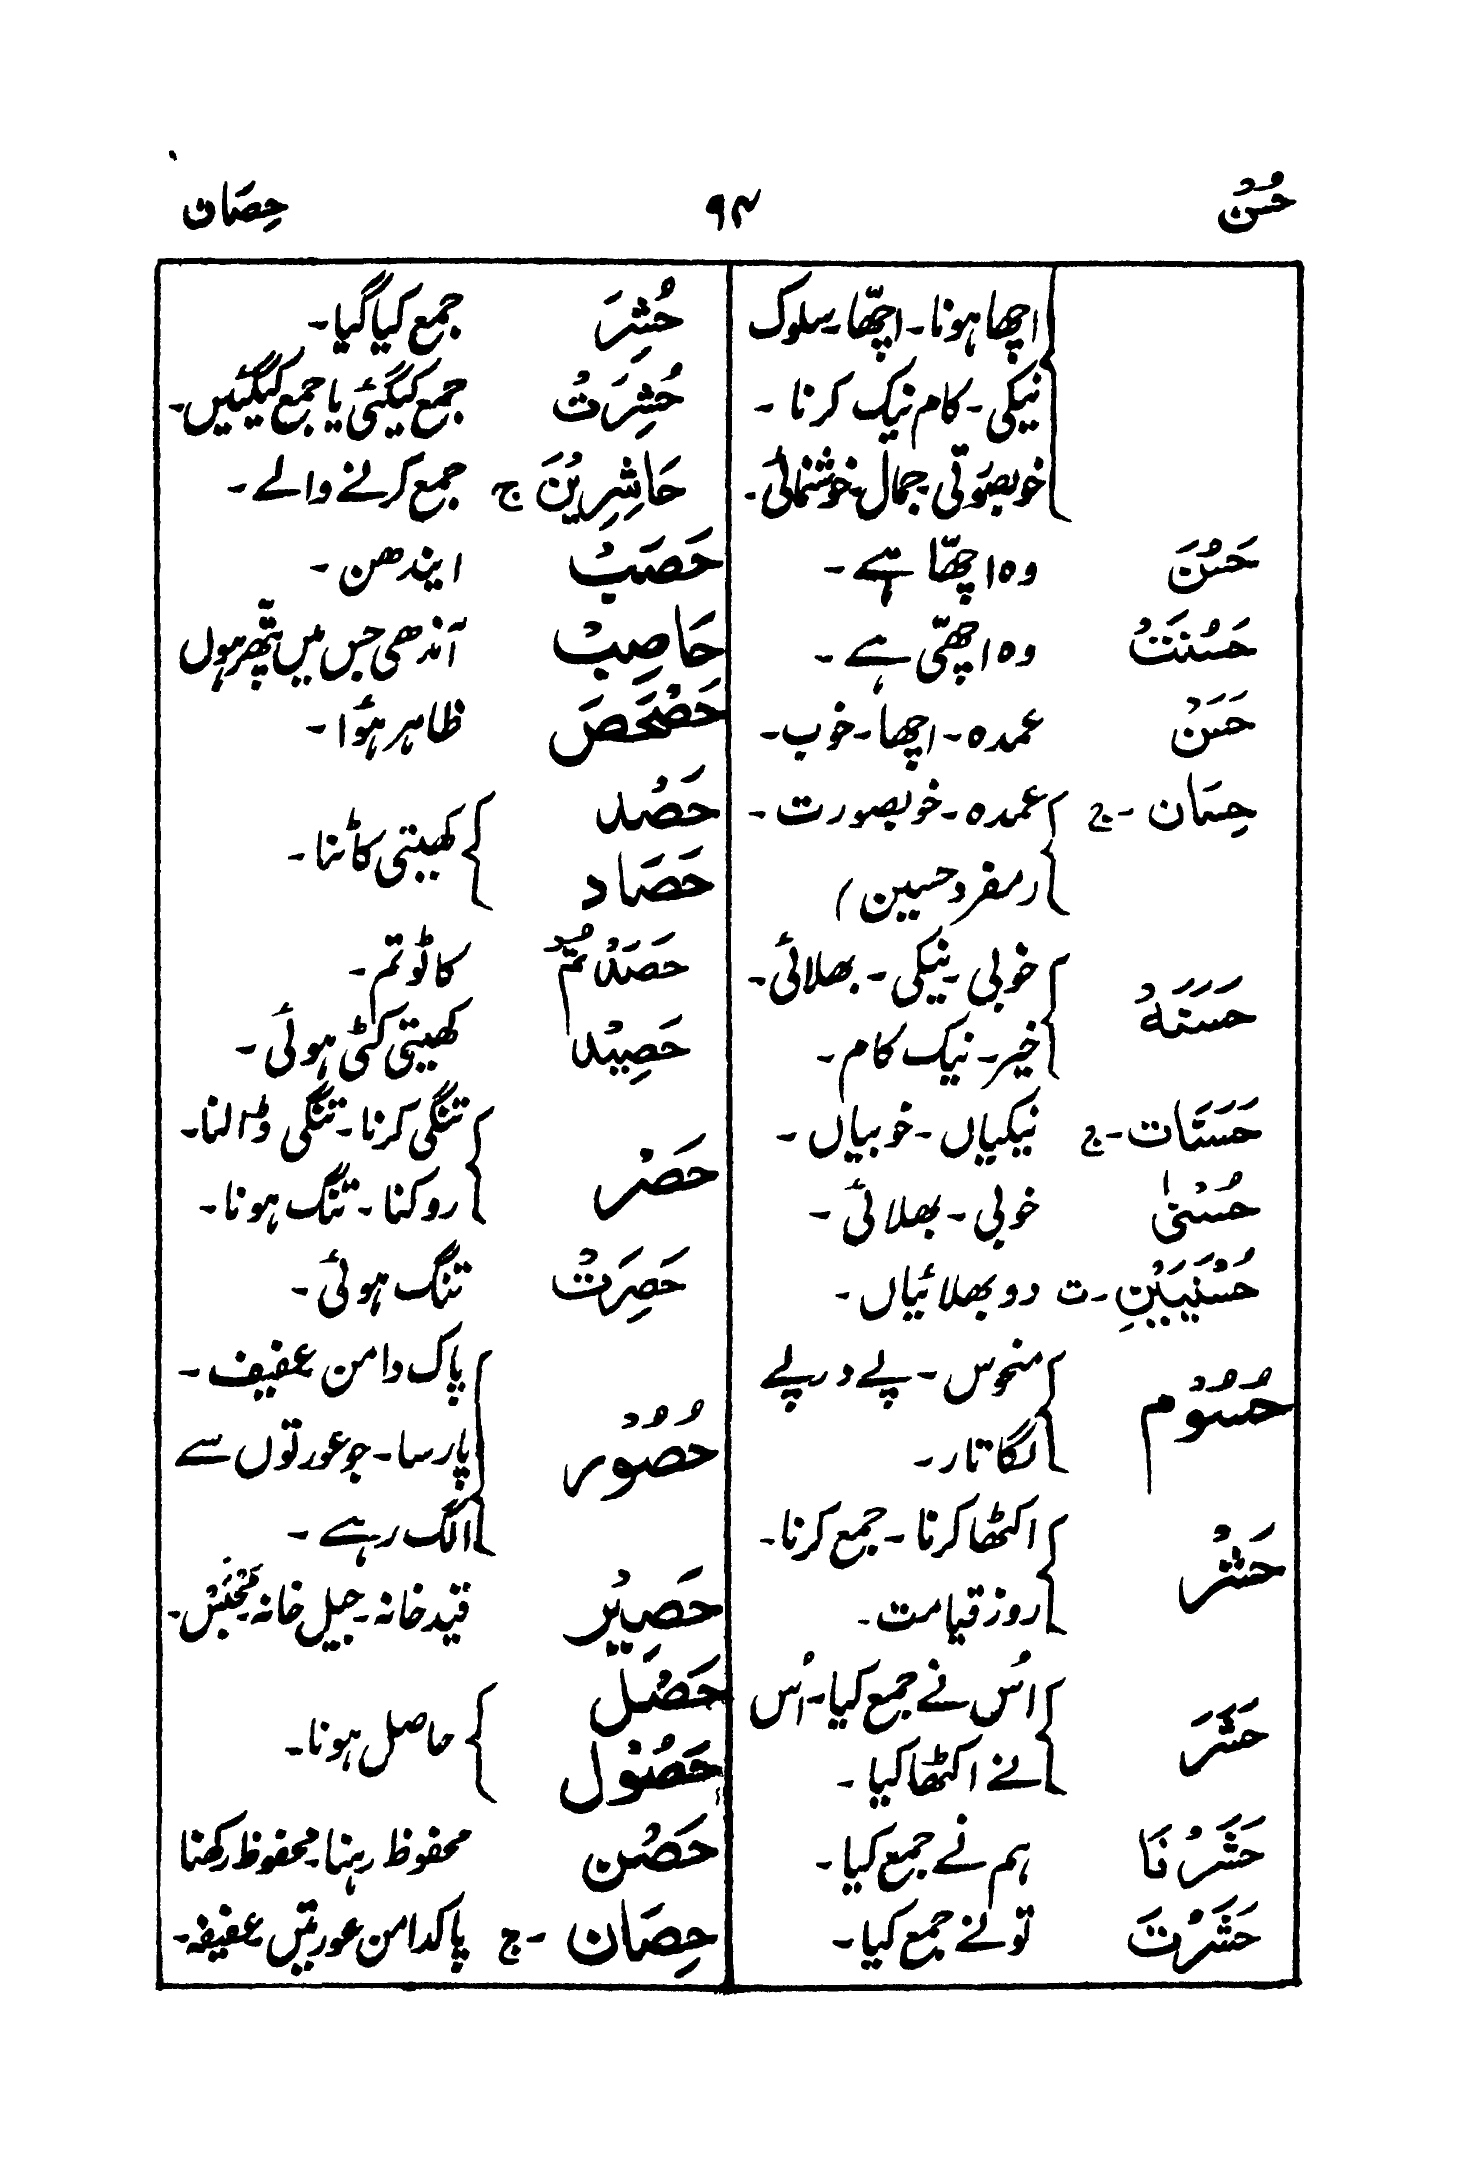 حُسْنٌ ۹۴ حِصَان
اچھا ہونا۔ اچّھا۔ سلوک
نیکی۔ کام نیک کرنا۔
خوبصورتی جمال۔ خوشنمائی۔
حَسُنَ وہ اچھّا ہے۔
حَسُنَتْ وہ اچھّی ہے۔
حَسَنْ عمدہ۔ اچھا۔ خوب۔
حِسَان ۔ ج عمدہ۔ خوبصورت۔
(مفرد حسین)
حَسَنَةْ خوبی۔ نیکی۔ بھلائی۔
خیر۔ نیک کام۔
حَسَنَات۔ ج نیکیاں۔ خوبیاں۔
حُسْنیٰ خوبی۔ بھلائی۔
حُسْنَيَيْنِ۔ ت دو بھلائیاں۔
حُسُوْم منحوس۔ پے درپے
لگاتار۔
حَشْر اکٹھا کرنا۔ جمع کرنا۔
روز قیامت۔
حَشَرَ اُس نے جمع کیا۔ اُس
نے اکٹھا کیا۔
حَشَرْنَا ہم نے جمع کیا۔
حَشَرْتَ تونے جمع کیا۔
حُشِرَ جمع کیا گیا۔
حُشِرَتْ جمع کیگئی یا جمع کیگئیں۔
حَاشِرِيْنَ ج جمع کرنے والے۔
حَصَبْ ایندھن۔
حَاصِبْ آندھی جس میں پتّھر ہوں
حَصْحَصَ ظاہر ہؤا۔
حَصْد
حَصَاد کھیتی کاٹنا۔
حَصَدْتُّمْ کاٹو تم۔
حَصِيْد کھیتی کٹی ہوئی۔
حَصْر تنگی کرنا۔ تنگی ڈالنا۔
روکنا۔ تنگ ہونا۔
حَصِرَتْ تنگ ہوئی۔
حُصُوْر پاک دامن عفیف۔
پارسا۔ جو عورتوں سے
الگ رہے۔
حَصِيْر قید خانہ۔ جیل خانہ۔ مَحْبَسْ۔
حَصْل
حَصُوْل حاصل ہونا۔
حَصْن محفوظ رہنا۔ محفوظ رکھنا
حِصَان ۔ ج پاکدامن عورتیں عفیفہ۔